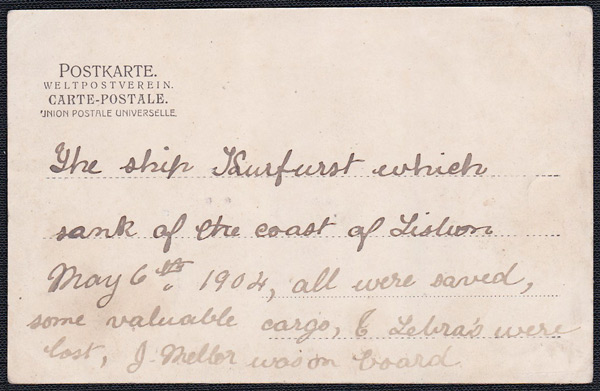 POSTKARTE.
WELTPOSTVEREIN.
CARTE-POSTALE.
UNION POSTALE UNIVERSELLE.
The ship Kurfurst which
sank of the coast of Lisbon
May 6th. 1904, all were saved,
some valuable cargo, & Zebra's were
lost, J. Meller was on board